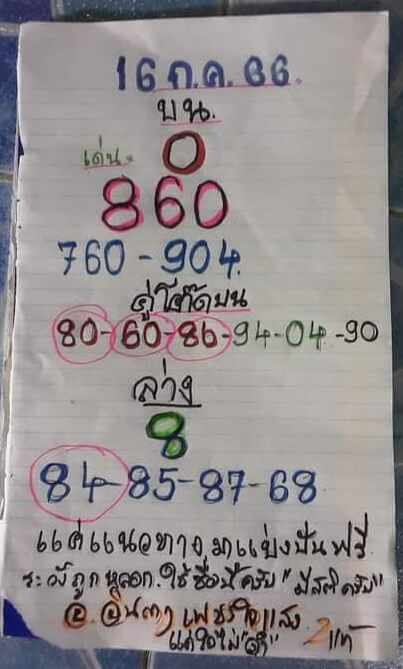 16 ก.ค. 66.
บน.
เด่น. 0
860
760 - 904.
คู่โต๊ดบน
80-60-86-94-04-90
ล่าง
8
84-85-87-68
แค่แนวทาง มาแบ่งปันฟรี
ระวังถูกหลอก. ใช้ชื่อนี้ครับ "มีสติครับ"
แต่ใจไม่"ดำ" 2 แท้